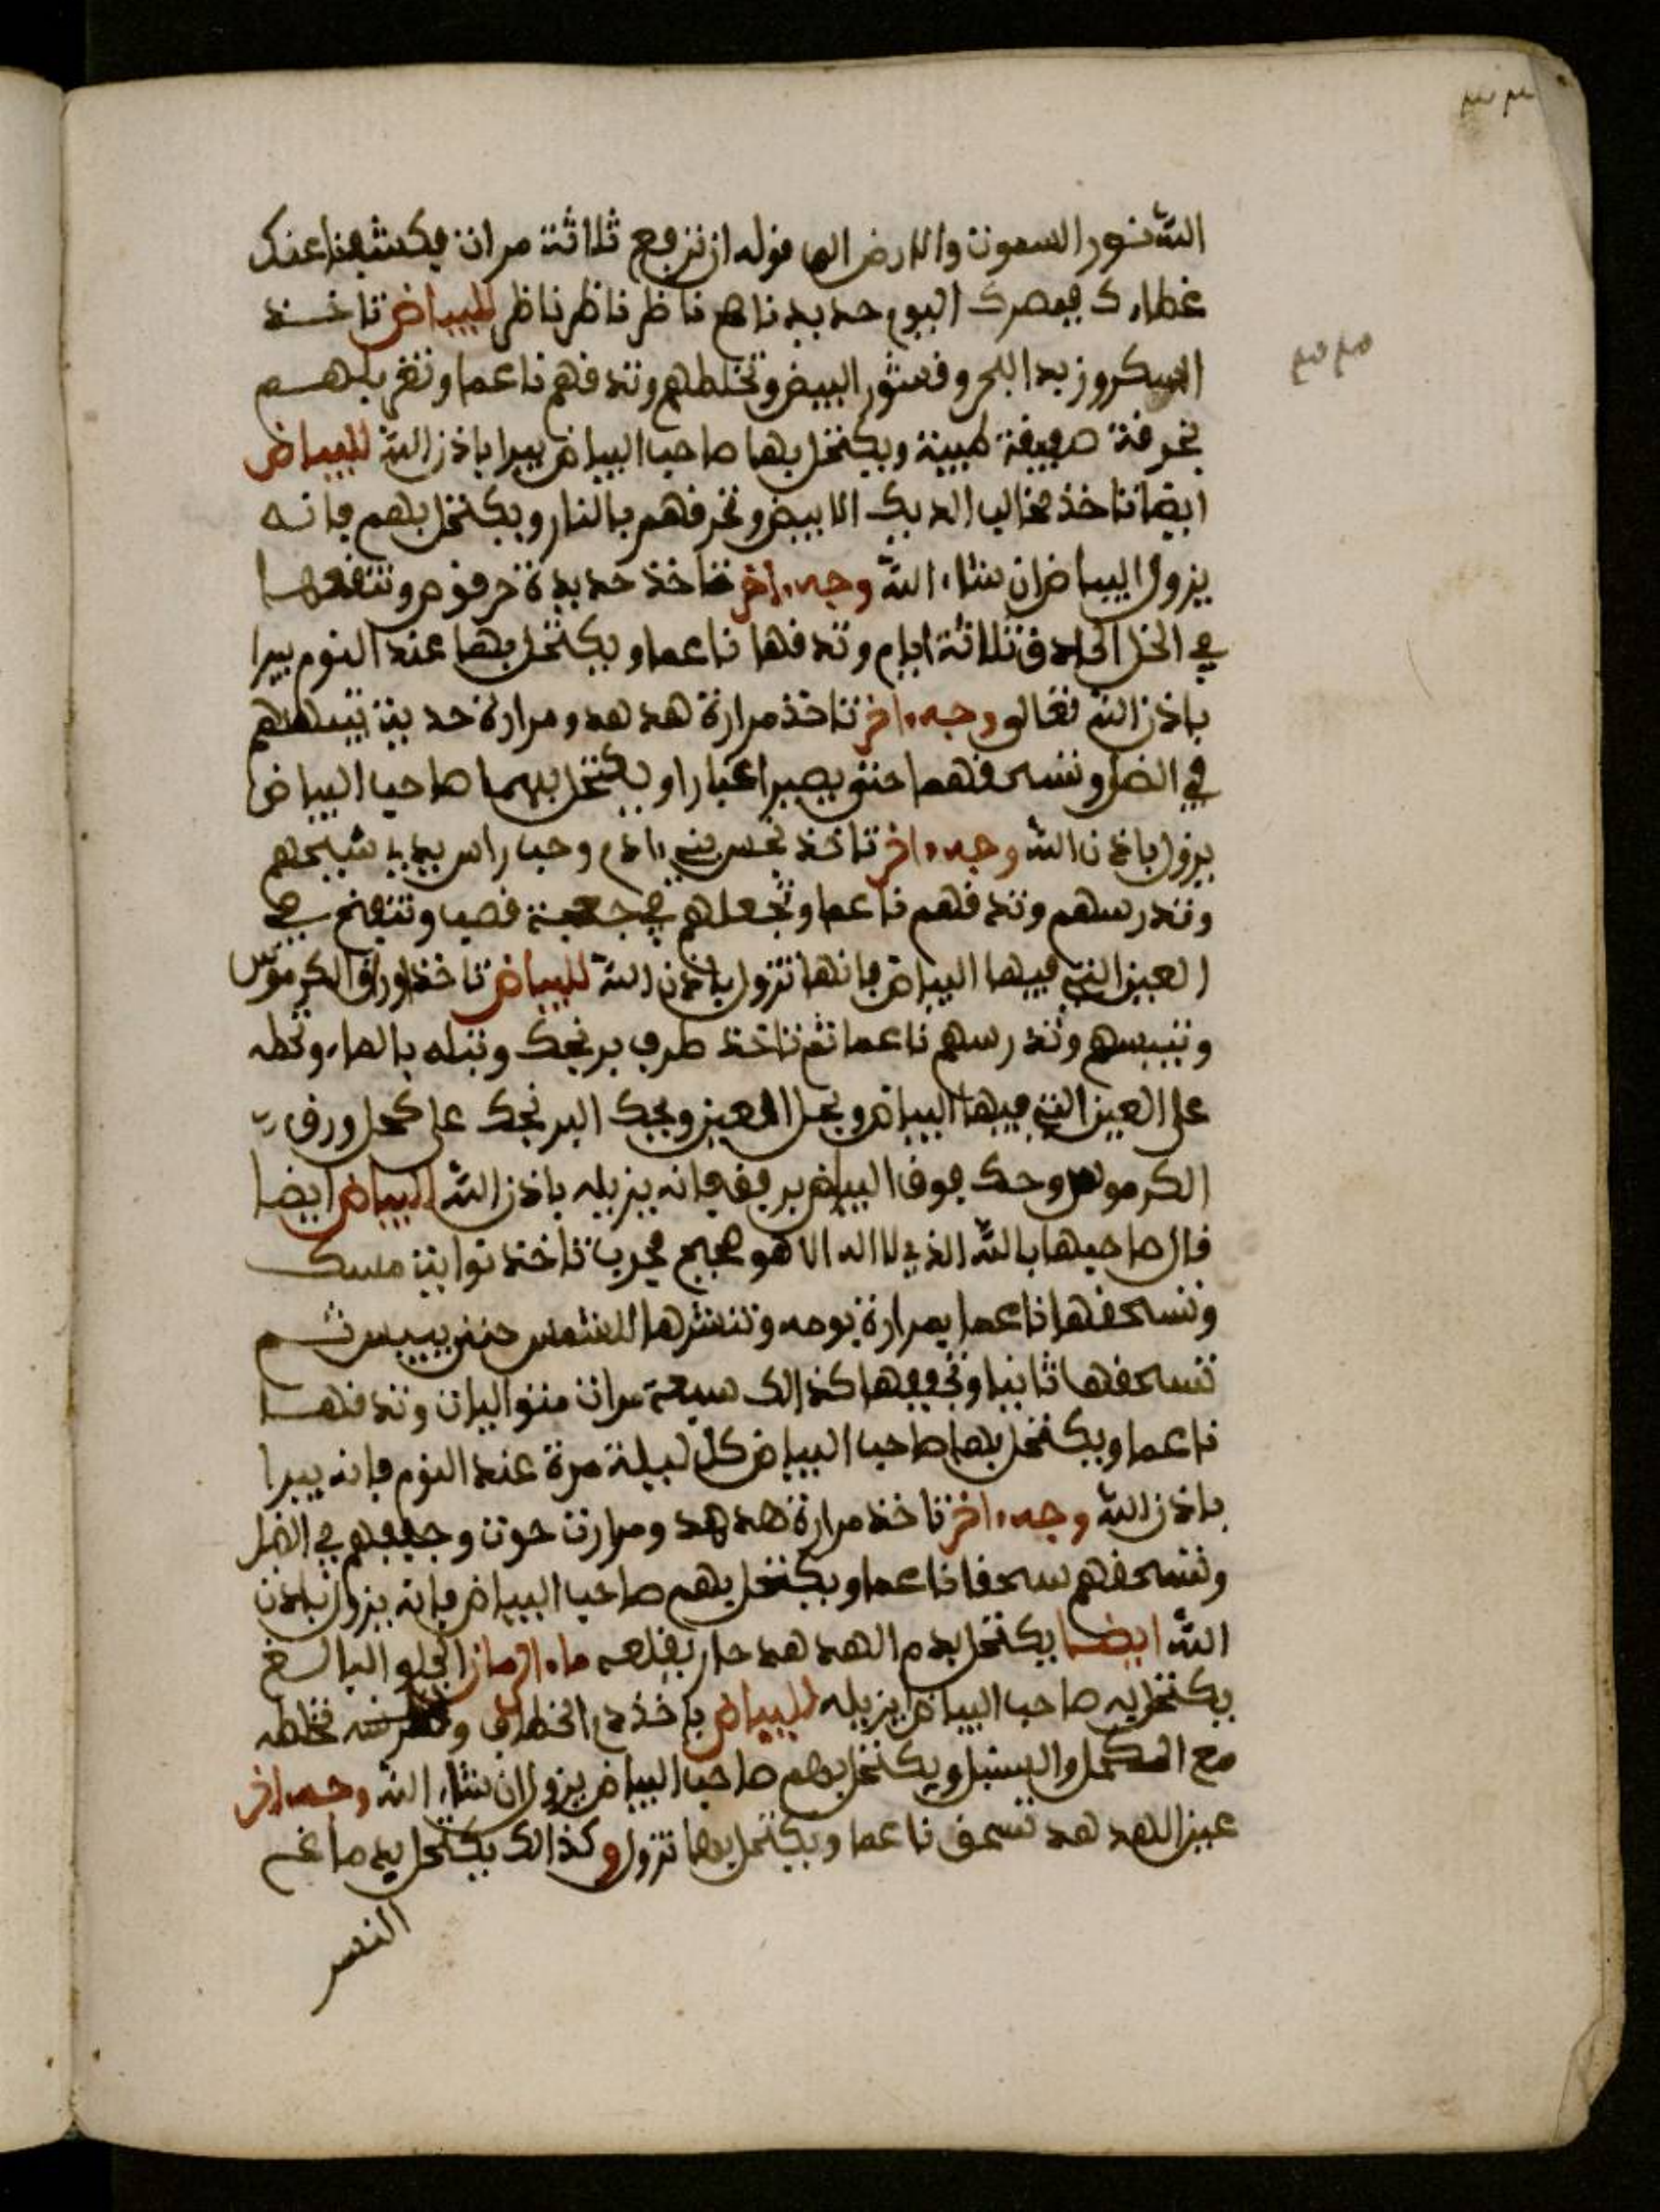 الله نور السموت والارض الى قوله ان ترفع ثلاثة مرات فكشفنا عنك
غطاءك فبصرك اليوم حديد ناظر ناظر ناظر للبياض تاخذ
السكر وزبد البحر وقشور البيض وتخلطهم وتدقهم ناعما وتغربلهم
بخرقة صفيقة طيبة ويكتحل بها صاحب البياض يبرا باذن الله للبياض
ايضا تاخذ مخالب الديك الابيض وتحرقهم بالنار ويكتحل بهم فانه
يزول البياض ان شاء الله وجه ءاخر تاخذ حديدة حرقوص وتنقعها
في الخل الحادق ثلاثة ايام وتدقها ناعما ويكتحل بها عند النوم يبرا
باذن الله تعالى وجه ءاخر تاخذ مرارة هدهد ومرارة حدية تيبسهم
في الظل وتسحقهما حتى يصيرا غبارا ويكتحل بهما صاحب البياض
يزول باذن الله وجه ءاخر تاخذ نجس بني ءادم وحب راس
وتدرسهم وتدقهم ناعما وتجعلهم في جعبة قصب وتنفخ في
العين التي فيها البياض فانها تزول باذن الله للبياض تاخذ اوراق الكرموس
وتيبسهم وتدرسهم ناعما ثم تاخذ طرف برنجك وتبله بالماء وتحطه
على العين التي فيها البياض ويحل العين ويحك البرنجك على كحل ورق
الكرموس وحك فوق البياض برفق فانه يزيله باذن الله للبياض ايضا
قال صاحبها بالله الذي لا اله الا هو صحيح مجرب تاخذ توابت مسك
وتسحقها ناعما بمرارة بومه وتنشرها للشمس حتى ييبس ثم
تسحقها ثانيا وتجففها كذالك سبعة مرات متواليات وتدقها
ناعما ويكتحل بها صاحب البياض كل ليلة مرة عند النوم فانه يبرا
باذن الله وجه ءاخر تاخذ مرارة هدهد ومرارت حوت وجففهم في الظل
وتسحقهم سحقا ناعما ويكتحل بهم صاحب البياض فانه يزول باذن
الله ايضا يكتحل بدم الهدهد حار يقلعه ماء الرمان الحلو البالغ
يكتحل به صاحب البياض يزيله للبياض ياخذ دم الخطاف تخلطه
مع الكحل والسنبل ويكتحل بهم صاحب البياض يزول ان شاء الله وجه ءاخر
عين الهدهد تسحق ناعما ويكتحل بها تزول وكذالك يكتحل بدماغ
النسر